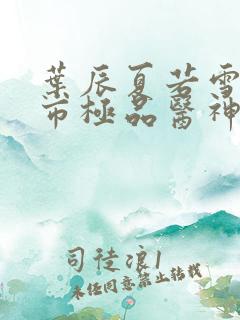 葉辰夏若雪
市極品醫神
司徒浪1
未经同意禁止转载